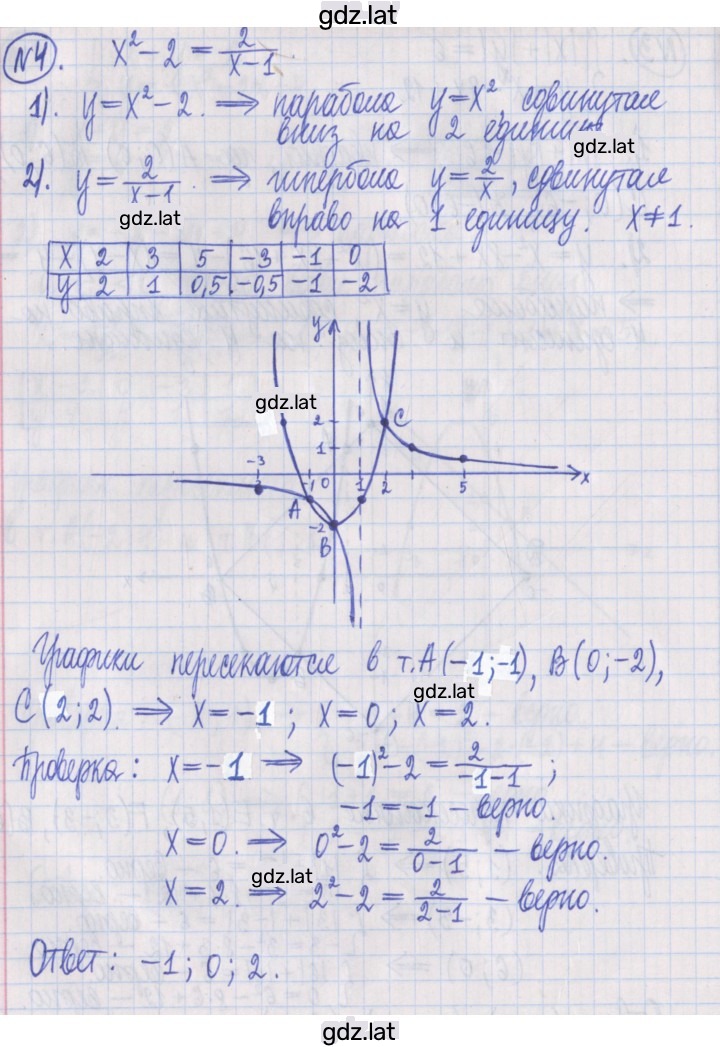 gdz.lat
№4. x² - 2 = 2/(x-1).
1). y = x² - 2. ⟹ парабола y = x², сдвинутая
вниз на 2 единицы
gdz.lat
2). y = 2/(x-1). ⟹ гипербола y = 2/x, сдвинутая
gdz.lat
вправо на 1 единицу. x ≠ 1.
x 2 3 5 -3 -1 0
y 2 1 0,5 -0,5 -1 -2
y
gdz.lat
2 C
1
-3 -1 0 1 2 5 x
A
-2
B
Графики пересекаются в т. A(-1; -1), B(0; -2),
gdz.lat
C(2; 2). ⟹ x = -1; x = 0; x = 2.
Проверка: x = -1 ⟹ (-1)² - 2 = 2/(-1-1);
-1 = -1 - верно.
x = 0. ⟹ 0² - 2 = 2/(0-1) - верно.
gdz.lat
x = 2. ⟹ 2² - 2 = 2/(2-1) - верно.
Ответ: -1; 0; 2.
gdz.lat